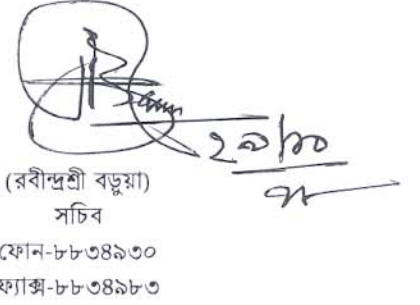 ২৯/১০
(রবীন্দ্রশ্রী বড়ুয়া)
সচিব
ফোন-৮৮৩৪৯৩০
ফ্যাক্স-৮৮৩৪৯৮৩